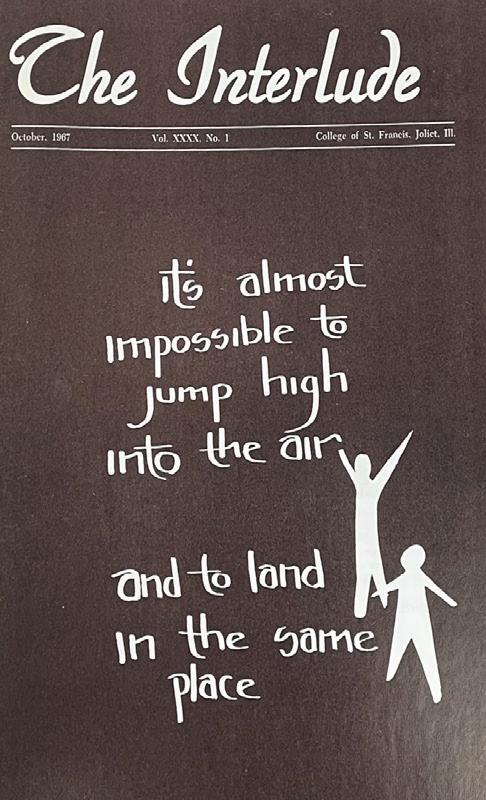 The Interlude
October, 1967 Vol. XXXX, No. 1 College of St. Francis, Joliet, Ill.
it's almost
impossible to
jump high
into the air
and to land
in the same
place